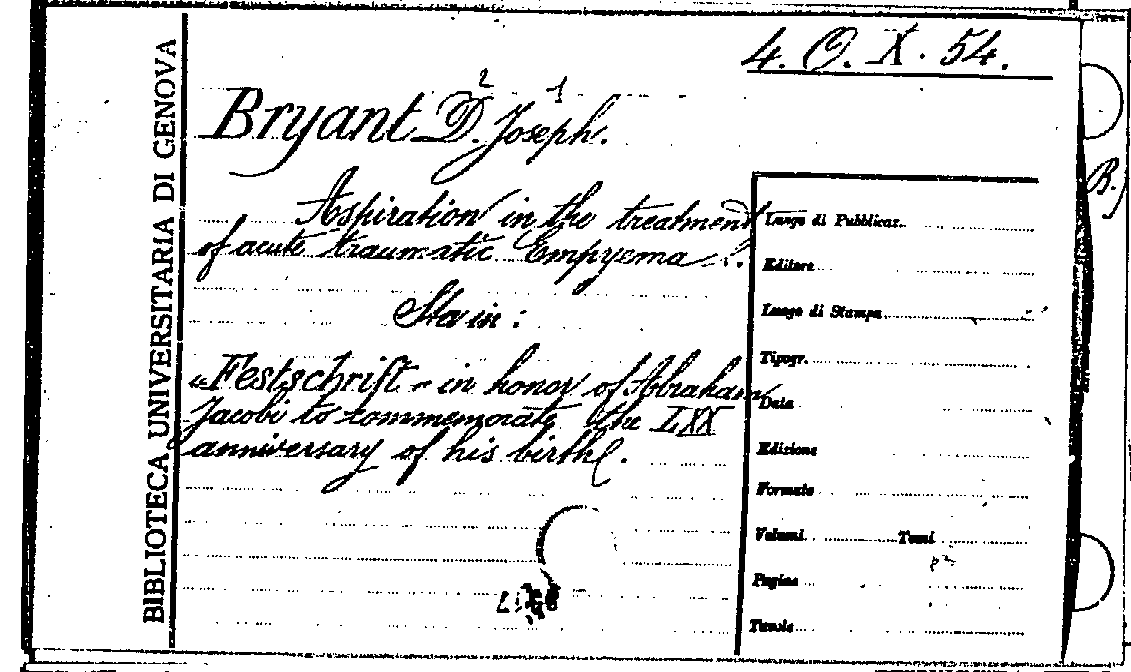 4. O. X. 54.
BIBLIOTECA UNIVERSITARIA DI GENOVA
2 1
Bryant D. Joseph.
Aspiration in the treatment
of acute traumatic Empyema.
Sta in:
„Festschrift„ in honor of Abraham
Jacobi to commemorate the LXX
anniversary of his birth.
Luogo di Pubblicaz.
Editore
Luogo di Stampa
Tipogr.
Data
Edizione
Formato
Volumi Tomi
Pagine
Tavole
B.)